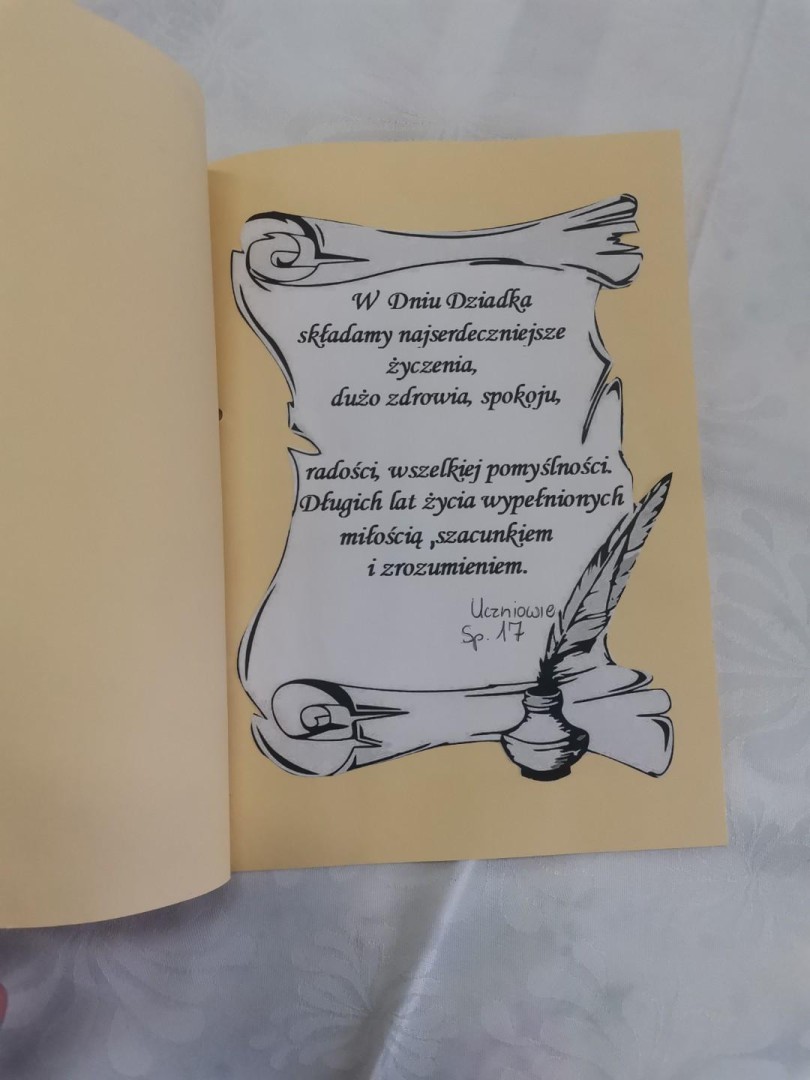 W Dniu Dziadka
składamy najserdeczniejsze
życzenia,
dużo zdrowia, spokoju,
radości, wszelkiej pomyślności.
Długich lat życia wypełnionych
miłością ,szacunkiem
i zrozumieniem.
Uczniowie
Sp. 17